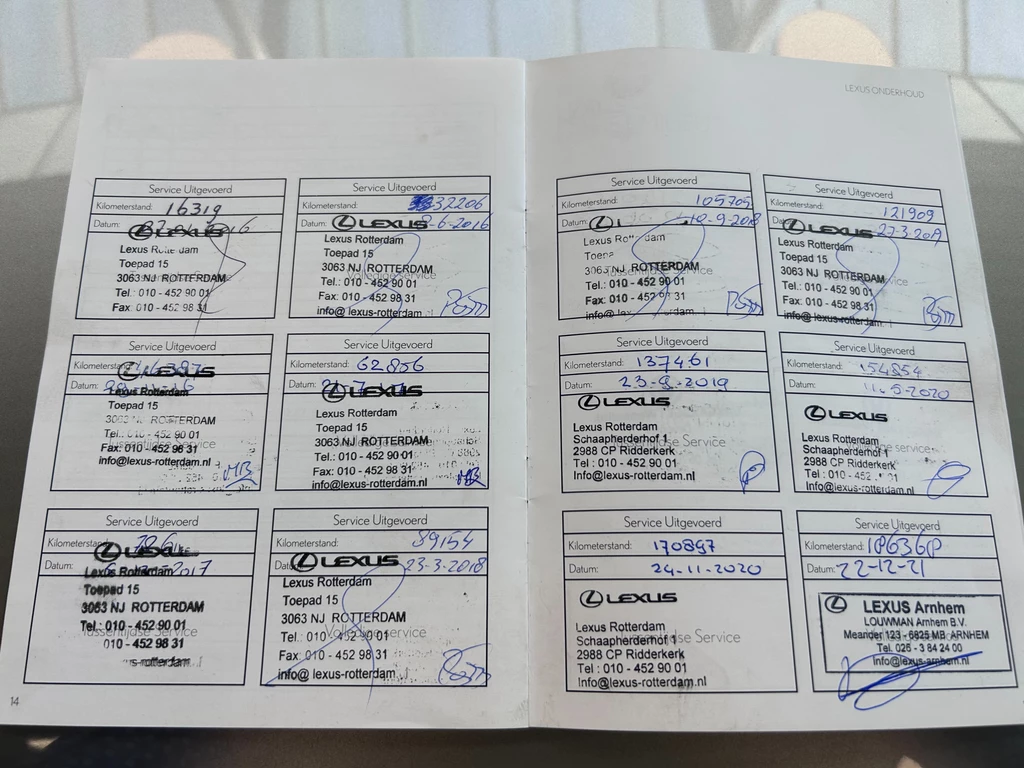 LEXUS ONDERHOUD
Service Uitgevoerd
Kilometerstand: 16319
Datum:
LEXUS
Lexus Rotterdam
Toepad 15
3063 NJ ROTTERDAM
Tel.: 010 - 452 90 01
Fax: 010 - 452 98 31
Service Uitgevoerd
Kilometerstand: 32206
Datum: 8-6-2016
LEXUS
Lexus Rotterdam
Toepad 15
3063 NJ ROTTERDAM
Volledige service
Tel.: 010 - 452 90 01
Fax: 010 - 452 98 31
info@ lexus-rotterdam.
Service Uitgevoerd
Kilometerstand:
Datum:
LEXUS
Lexus Rotterdam
Toepad 15
3063 NJ ROTTERDAM
Tel.: 010 - 452 90 01
Tussentijdse Service
Fax: 010 - 452 98 31
info@lexus-rotterdam.nl
MB
Service Uitgevoerd
Kilometerstand: 62856
Datum:
LEXUS
Lexus Rotterdam
Toepad 15
3063 NJ ROTTERDAM
Volledige service
Tel.: 010 - 452 90 01
Fax: 010 - 452 98 31
info@lexus-rotterdam.nl
MB
Service Uitgevoerd
Kilometerstand:
Datum:
LEXUS
Lexus Rotterdam
Toepad 15
3063 NJ ROTTERDAM
Tel.: 010 - 452 90 01
Tussentijdse Service
010 - 452 98 31
Service Uitgevoerd
Kilometerstand: 89154
Datum: 23-3-2018
LEXUS
Lexus Rotterdam
Toepad 15
3063 NJ ROTTERDAM
Tel.: 010 - 452 90 01
Volledige service
Fax: 010 - 452 98 31
info@ lexus-rotterdam.
14
Service Uitgevoerd
Kilometerstand: 105705
Datum: 10-9-2018
Lexus Rotterdam
3063 NJ ROTTERDAM
Tussentijdse Service
Tel.: 010 - 452 90 01
Fax: 010 - 452 98 31
info@ lexus-rotterdam.
Service Uitgevoerd
Kilometerstand: 121909
Datum: 27-3-2019
LEXUS
Lexus Rotterdam
Toepad 15
3063 NJ ROTTERDAM
Volledige service
Tel.: 010 - 452 90 01
Fax: 010 - 452 98 31
info@ lexus-rotterdam.
Service Uitgevoerd
Kilometerstand: 137461
Datum: 23-9-2019
LEXUS
Lexus Rotterdam
Schaapherderhof 1
Tussentijdse Service
2988 CP Ridderkerk
Tel : 010 - 452 90 01
Info@lexus-rotterdam.nl
Service Uitgevoerd
Kilometerstand: 154854
Datum:
LEXUS
Lexus Rotterdam
Schaapherderhof 1
Volledige service
2988 CP Ridderkerk
Tel : 010 - 452
Info@lexus-rotterdam.nl
Service Uitgevoerd
Kilometerstand: 170897
Datum: 24-11-2020
LEXUS
Lexus Rotterdam
Schaapherderhof 1
Tussentijdse Service
2988 CP Ridderkerk
Tel : 010 - 452 90 01
Info@lexus-rotterdam.nl
Service Uitgevoerd
Kilometerstand: 186368
Datum: 22-12-21
LEXUS Arnhem
LOUWMAN Arnhem B.V.
Meander 123 - 6825 MB ARNHEM
Tel. 026 - 3 84 24 00
info@lexus-arnhem.nl